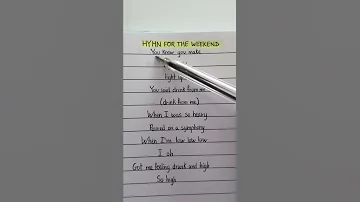 HYMN FOR THE WEEKEND
You Know you make
light up
You said drink from me
(drink from me)
When I was so heavy
Poured on a symphony
When I'm low low low
I oh
Got me feeling drunk and high
So high